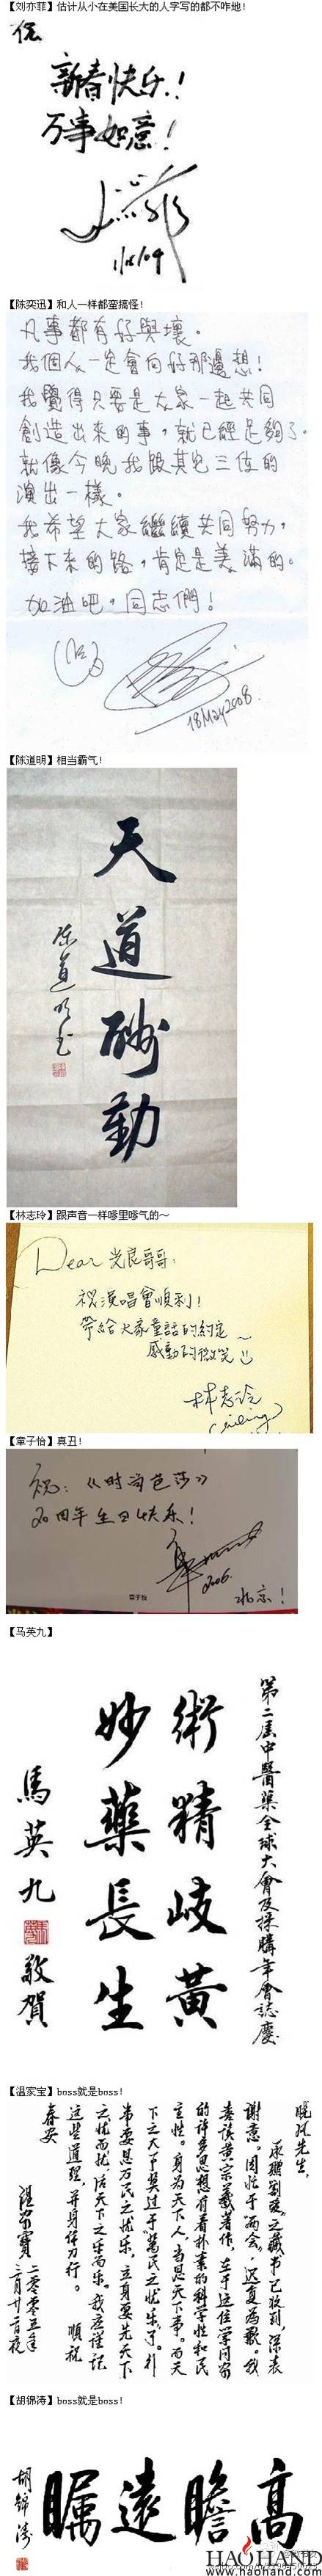 【刘亦菲】估计从小在美国长大的人字写的都不咋地!
新春快乐!
万事如意!
【陈奕迅】和人一样都蛮搞怪!
凡事都有好與壞。
我個人一定會向好那邊想!
我覺得只要是大家一起共同
創造出來的事,就已經足夠了。
就像今晚我跟其它三位的
演出一樣。
我希望大家繼續共同努力,
接下來的路,肯定是美滿的。
加油吧,同志們!
18 May 2008
【陈道明】相当霸气!
天道酬勤
陈道明书
【林志玲】跟声音一样嗲里嗲气的～
Dear 光良哥哥:
祝演唱會順利!
帶給大家童話的約定～
感動的微笑
林志玲
【章子怡】真丑!
祝:《时尚芭莎》
20周年生日快乐!
2006.
北京!
章子怡
【马英九】
第二屆中醫藥全球大會及採購年會誌慶
術精岐黃
妙藥長生
馬英九
敬賀
【温家宝】boss就是boss!
晓风先生,
承赠刘瑗之藏书已收到,深表
谢意。因忙于两会,迟复为歉。我
喜读黄宗羲著作,在于这位学问家
的许多思想有着朴素的科学性和民
主性。身为天下人,当思天下事。而天
下之大事莫过于万民之忧乐了。行
事要思万民之忧乐,立身要先天下
之忧而忧,后天下之乐而乐。我应谨记
这些道理,并身体力行。顺祝
春安
温家宝
二〇〇五年
三月廿一日夜
【胡锦涛】boss就是boss!
高瞻遠矚
胡锦涛
HAOHAND
www.haohand.com